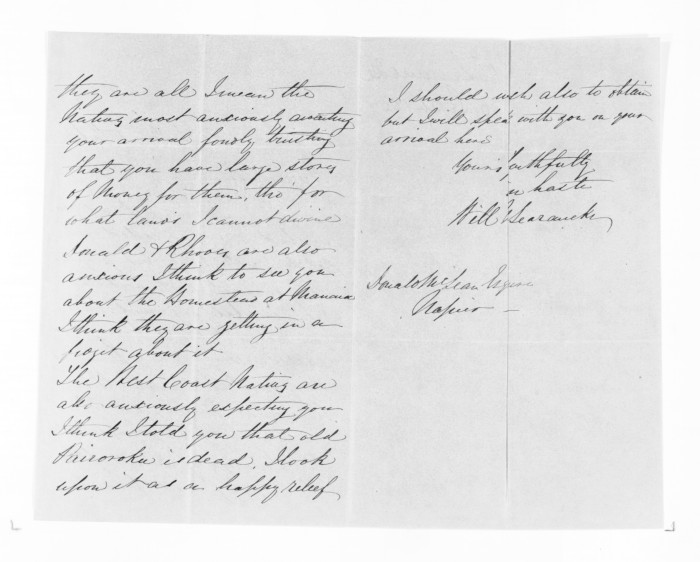 they are all I mean the
Natives most anxiously awaiting
your arrival fondly trusting
that you have large stores
of Money for them, tho' for
what lands I cannot divine
Donald & Rhodes are also
anxious I think to see you
about the Homestead at
I think they are getting in a
fidget about it
The West Coast Natives are
also anxiously expecting you
I think I told you that old
is dead. I look
upon it as a happy relief
I should wish also to obtain
but I will speak with you on your
arrival here
Yours faithfully
in haste
Will Searancke
Donald McLean Esquire
Napier